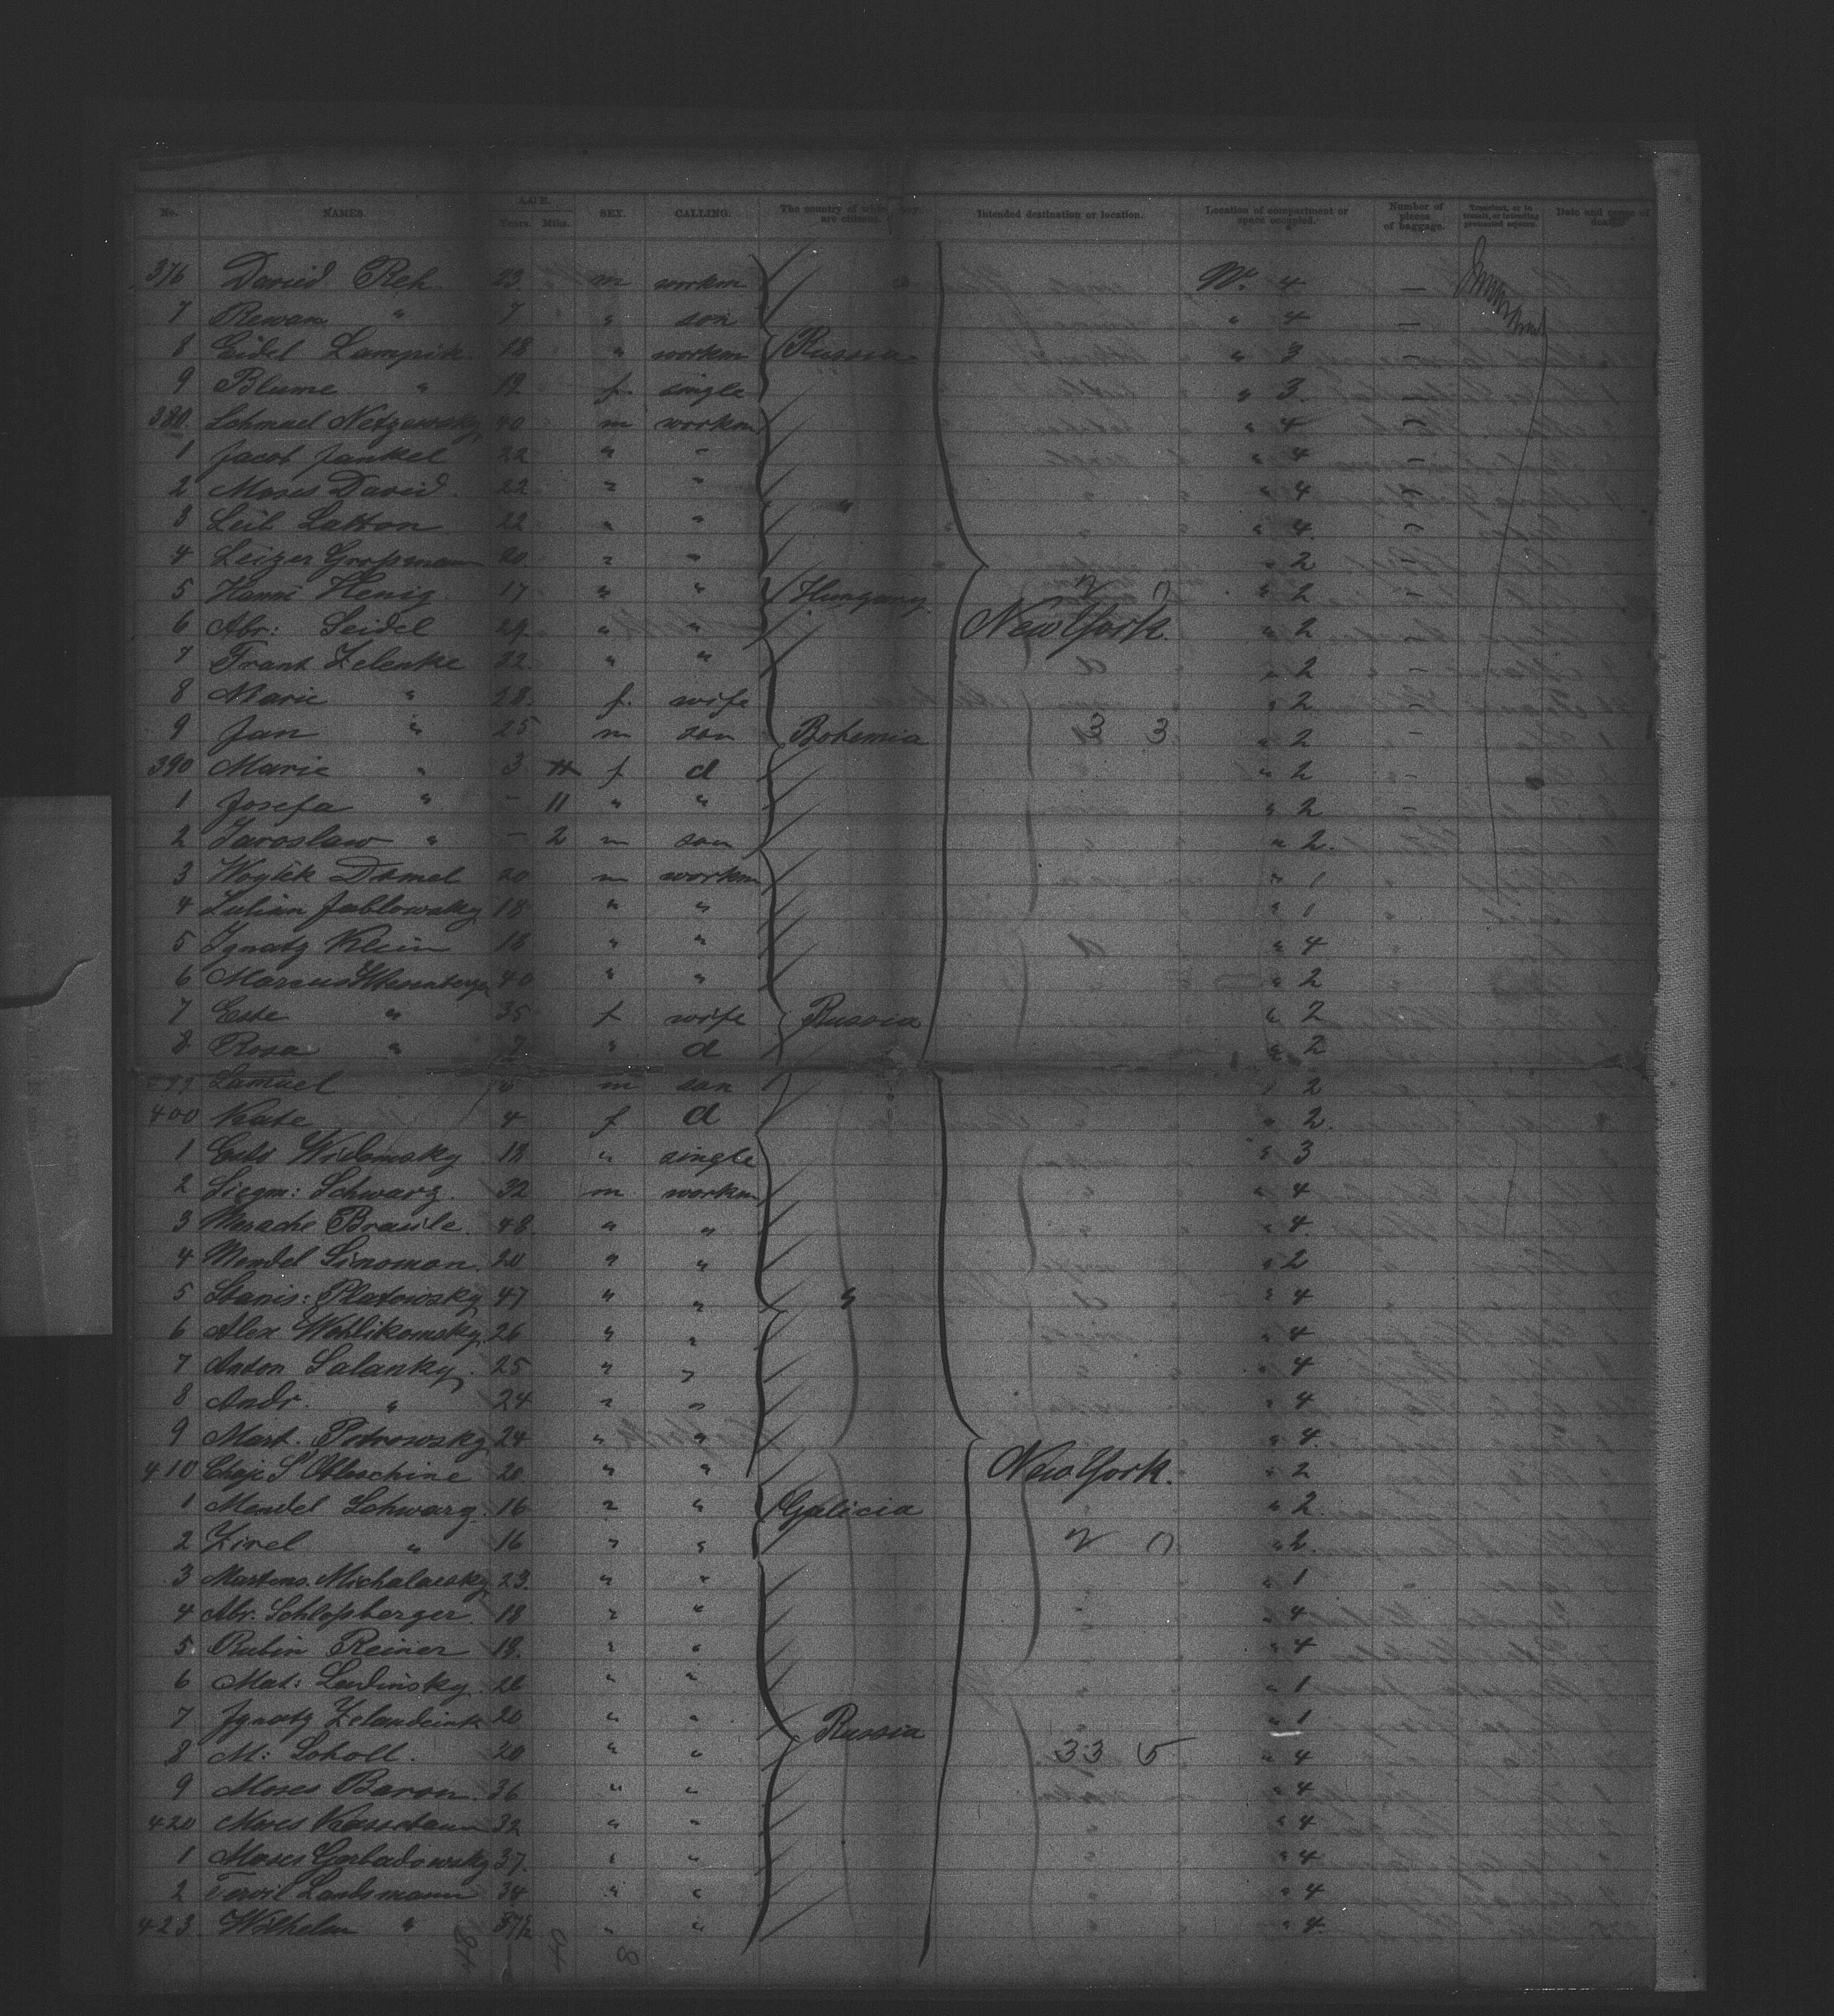 No. NAMES. AGE. Years. Mths. SEX. CALLING. The country of which they are citizens. Intended destination or location. Location of compartment or space occupied. Number of pieces of baggage. Transient, or in transit, or intending protracted sojourn. Date and cause of death.
376 David Reh. 23 m workm No. 4 —
7 Rewan " 7 " son " 4 —
8 Eidel Lampik 18 " workm Russia " 3 —
9 Blume " 19 f. single " 3 —
380 Schmuel Netzewsky 40 m workm " 4 —
1 Jacob Jankel 22 " " " 4 —
2 Moses David. 22 " " " " 4 —
3 Leib Latton 22 " " " 4 —
4 Leizer Großmann 20 " " " 2 —
5 Hanni Henig 17 " " Hungary " 2 —
6 Abr: Seidel 29 " " New York. " 2 —
7 Frant Zelenke 32 " " " 2 —
8 Marie " 28. f. wife " 2 —
9 Jan " 25 m son Bohemia 3 3 " 2 —
390 Marie " 3 f d " 2 —
1 Josefa " - 11 " " " 2 —
2 Jaroslaw " - 2 m son " 2.
3 Woytek Domel 20 m workm " 1
4 Julian Jablowsky 18 " " " 1
5 Ignatz Klein 18 " " " 4
6 Marcus 40 " " " 2
7 Este " 35 f wife Russia " 2
8 Rosa " 7 " d " 2
399 Samuel m son " 2
400 Kate 4 f d " 2.
1 18 " single " 3
2 Siegm: Schwarz. 32 m workm " 4
3 48. " " " 4.
4 Mendel Sinoman. 20 " " " 2
5 Stanis: Platowsky 47 " " " " 4
6 Alex 26 " " " 4
7 Anton Salanky. 25 " " " 4
8 Andr. " 24 " " " 4
9 Mart. Petrowsky 24 " " " 4.
410 20 " " New York. " 2
1 Mendel Schwarz. 16 " " Galicia " 2.
2 Zirel " 16 " " " 2.
3 Michalaesky 23. " " " 1
4 Abr. Schloßberger. 18 " " " 4
5 Rubin Reiner 18. " " " 4
6 Mat: Ludinsky. 26 " " " 1
7 Ignatz 20 " " Russia " 1
8 M: Scholl. 20 " " 33 5 " 4
9 Moses Baron. 36 " " " 4
420 Moses 32 " " " 4
1 Moses Garbadowsky 37. " " " 4
2 Landsmann 34 " " " 4
423. Wilhelm " " " " 4.